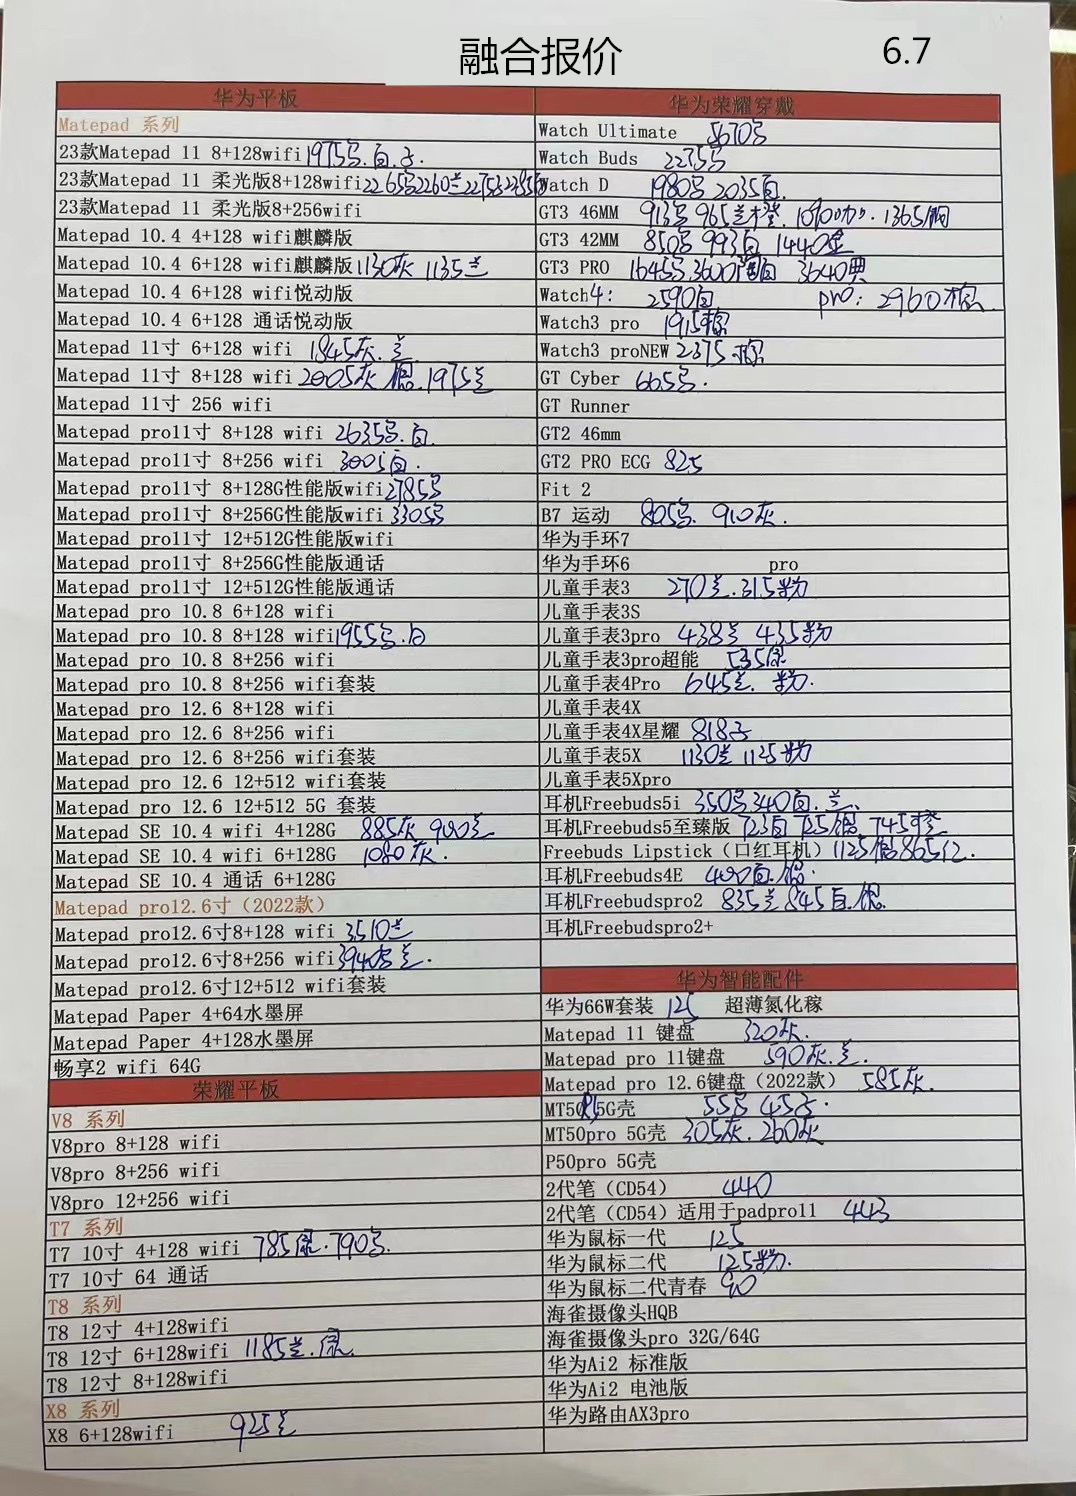 融合报价 6.7
华为平板
Matepad 系列
23款Matepad 11 8+128wifi 1975 白
23款Matepad 11 柔光版8+128wifi 2265 2260兰 2275 2285
23款Matepad 11 柔光版8+256wifi
Matepad 10.4 4+128 wifi麒麟版
Matepad 10.4 6+128 wifi麒麟版 1130灰 1135兰
Matepad 10.4 6+128 wifi悦动版
Matepad 10.4 6+128 通话悦动版
Matepad 11寸 6+128 wifi 1845灰.兰
Matepad 11寸 8+128 wifi 2005灰 1975兰
Matepad 11寸 256 wifi
Matepad pro11寸 8+128 wifi 2635 白
Matepad pro11寸 8+256 wifi 3005白
Matepad pro11寸 8+128G性能版wifi 2785
Matepad pro11寸 8+256G性能版wifi 3305
Matepad pro11寸 12+512G性能版wifi
Matepad pro11寸 8+256G性能版通话
Matepad pro11寸 12+512G性能版通话
Matepad pro 10.8 6+128 wifi
Matepad pro 10.8 8+128 wifi 1955 白
Matepad pro 10.8 8+256 wifi
Matepad pro 10.8 8+256 wifi套装
Matepad pro 12.6 8+128 wifi
Matepad pro 12.6 8+256 wifi
Matepad pro 12.6 8+256 wifi套装
Matepad pro 12.6 12+512 wifi套装
Matepad pro 12.6 12+512 5G 套装
Matepad SE 10.4 wifi 4+128G 885灰 900兰
Matepad SE 10.4 wifi 6+128G 1080灰.
Matepad SE 10.4 通话 6+128G
Matepad pro12.6寸（2022款）
Matepad pro12.6寸8+128 wifi 3510兰
Matepad pro12.6寸8+256 wifi 3940 兰.
Matepad pro12.6寸12+512 wifi套装
Matepad Paper 4+64水墨屏
Matepad Paper 4+128水墨屏
畅享2 wifi 64G
荣耀平板
V8 系列
V8pro 8+128 wifi
V8pro 8+256 wifi
V8pro 12+256 wifi
T7 系列
T7 10寸 4+128 wifi 785 790
T7 10寸 64 通话
T8 系列
T8 12寸 4+128wifi
T8 12寸 6+128wifi 1185兰
T8 12寸 8+128wifi
X8 系列
X8 6+128wifi 925兰
华为荣耀穿戴
Watch Ultimate 5670
Watch Buds 2275
Watch D 1980 2035白.
GT3 46MM 913 965 1090 1365
GT3 42MM 850 993白 1440金
GT3 PRO 1645 3600 3640典
Watch4: 2590白 pro: 2960棕.
Watch3 pro 1915棕
Watch3 proNEW 2375棕
GT Cyber 665
GT Runner
GT2 46mm
GT2 PRO ECG 825
Fit 2
B7 运动 805 910灰.
华为手环7
华为手环6 pro
儿童手表3 270兰.315粉
儿童手表3S
儿童手表3pro 438兰 435粉
儿童手表3pro超能 535
儿童手表4Pro 645兰. 粉.
儿童手表4X
儿童手表4X星耀 818
儿童手表5X 1130兰 1125粉
儿童手表5Xpro
耳机Freebuds5i 350 340白.兰.
耳机Freebuds5至臻版 723白 725 745橙
Freebuds Lipstick（口红耳机） 1125 865红.
耳机Freebuds4E 400白.
耳机Freebudspro2 835兰 845白.银.
耳机Freebudspro2+
华为智能配件
华为66W套装 125 超薄氮化稼
Matepad 11 键盘 320灰.
Matepad pro 11键盘 590灰.兰.
Matepad pro 12.6键盘（2022款） 585灰.
MT50 5G壳 55 45
MT50pro 5G壳 305灰. 260灰
P50pro 5G壳
2代笔（CD54） 440
2代笔（CD54）适用于padpro11 443
华为鼠标一代 125
华为鼠标二代 125粉.
华为鼠标二代青春 90
海雀摄像头HQB
海雀摄像头pro 32G/64G
华为Ai2 标准版
华为Ai2 电池版
华为路由AX3pro